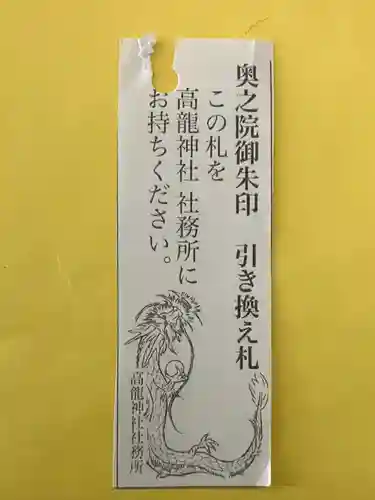 奥之院御朱印 引き換え札
この札を
高龍神社 社務所に
お持ちください。
高龍神社社務所